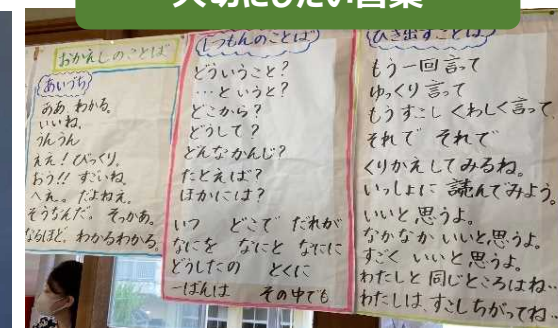 大切にしたい言葉
おかえしのことば
あいづち
ああ わかる。
いいね。
うんうん
ええ！びっくり。
おう!! すごいね。
へえ。だよねえ。
そうなんだ。そっかあ。
なるほど。わかるわかる。
しつもんのことば
どういうこと？
…というと？
どこから？
どうして？
どんなかんじ？
たとえば？
ほかには？
いつ どこで だれが
なにを なにと なにに
どうしたの とくに
一ばんは その中でも
ひき出すことば
もう一回 言って
ゆっくり 言って
もうすこし くわしく 言って
それで それで
くりかえしてみるね。
いっしょに 読んでみよう。
いいと 思うよ。
なかなか いいと 思うよ。
すごく いいと 思うよ。
わたしと 同じところはね…
わたしは、すこしちがってね